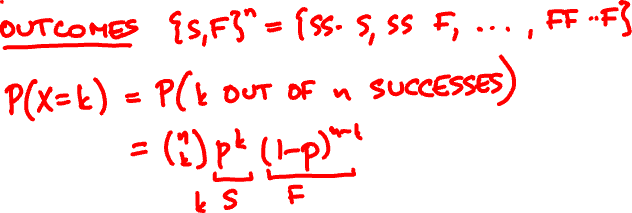 OUTCOMES {S,F}ⁿ = {SS· S, SS F, ..., FF··F}
P(X=k) = P(k OUT OF n SUCCESSES)
= (n k) pᵏ (1-p)ⁿ⁻ᵏ
k S F